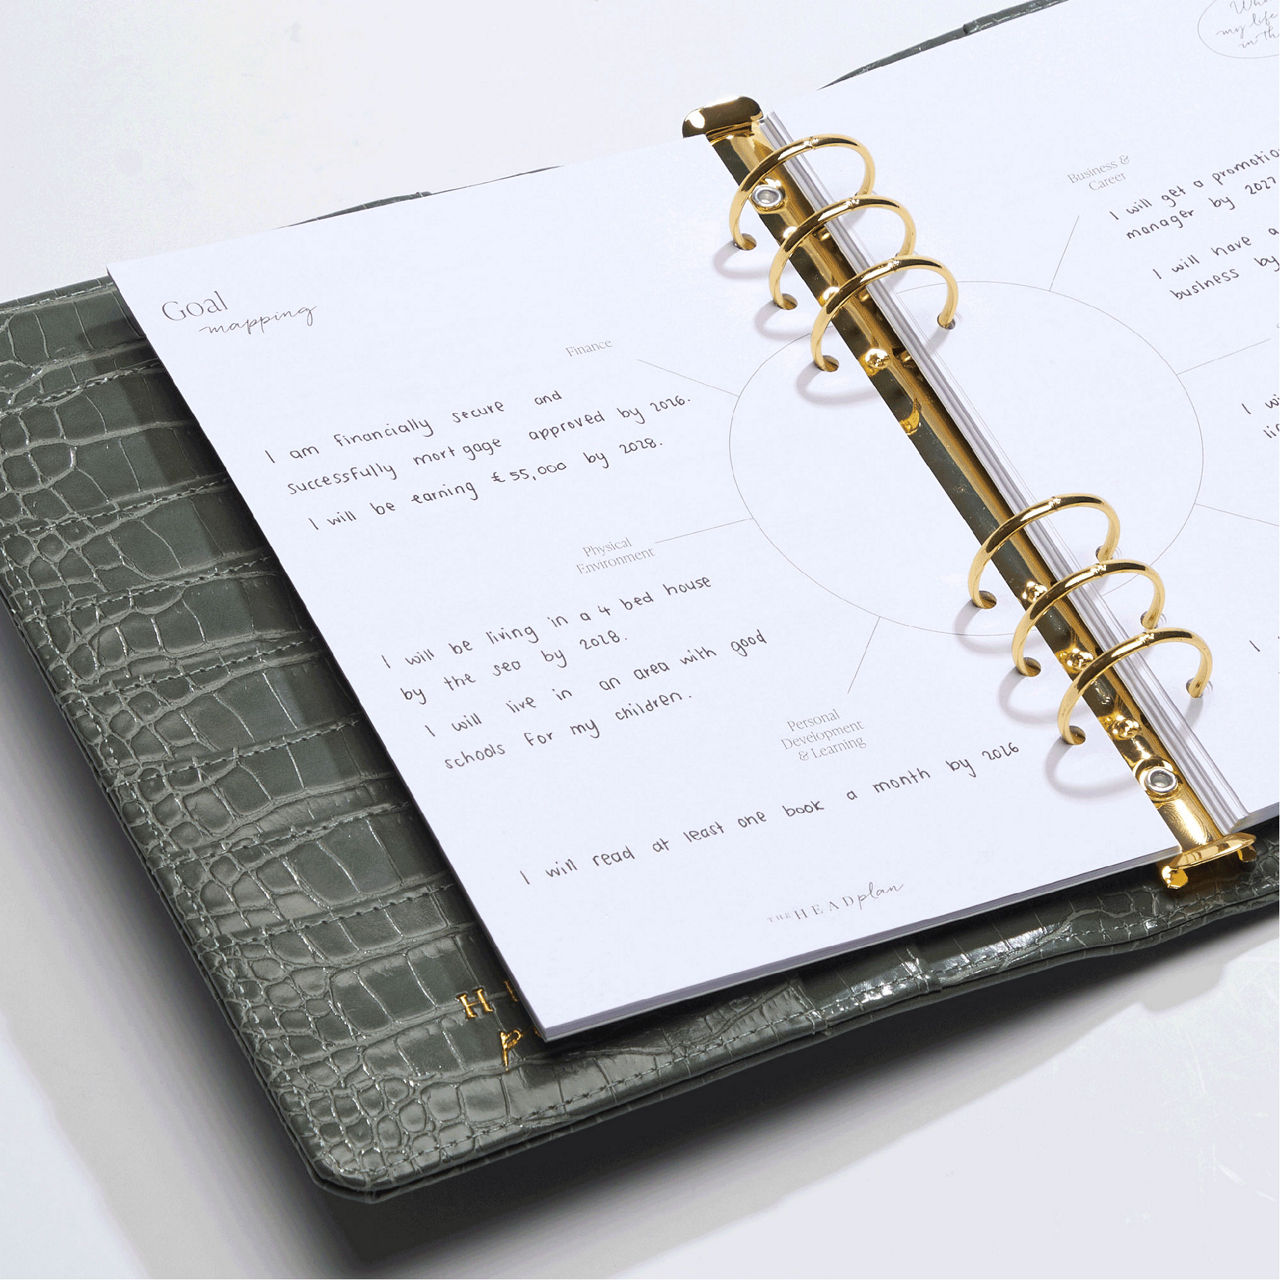 Goal
mapping
Finance
I am financially secure and
successfully mortgage approved by 2026.
I will be earning £55,000 by 2028.
Physical
Environment
I will be living in a 4 bed house
by the sea by 2028.
I will live in an area with good
schools for my children.
Personal
Development
& Learning
I will read at least one book a month by 2026
THE HEADplan
my life
in the
Business &
Career
I will get a promotio
manager by 2027
I will have a
business by
I wi
I
H